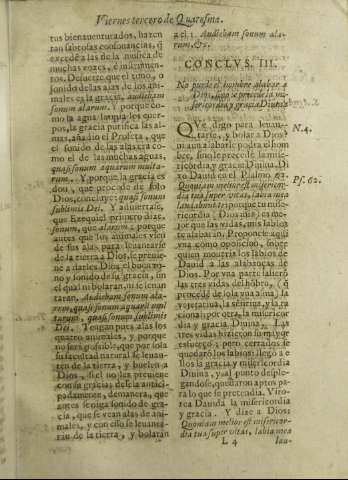 Viernes tercero de Quaresma.
tus bienauenturados, hazen
tan sabrosas consonancias, q̃
excede a las de la musica de
muchas vozes, è instrumen-
tos. De suerte que el tono, o
sonido de las alas de los ani-
males es la gracia, audiebam
sonum alarum. Y porque co-
mo la agua limpia los cuer-
pos, la gracia purifica las al-
mas, añadio el Profeta, que
el sonido de las alas era co-
mo el de las muchas aguas,
quasi sonum aquarum multa-
rum. Y porque la gracia es
don, que procede de solo
Dios, concluye: quasi sonum
sublimis Dei. Y aduiertase,
que Ezequiel primero dize,
sonum, que alarum: porque
antes que los animales vsen
de sus alas para leuantarse
de la tierra a Dios, se preuie-
ne a darles Dios el boca
y sonido de su gracia, sin
el qual ni bolaran, ni se leuan
taran. Audiebam sonum ala-
rum, quasi sonum aquarum mul
tarum, quasi sonum sublimis
Dei. Tengan pues alas los
quatro animales, y porque
no sera possible, que por sola
su facultad natural se leuan-
ten de la tierra, y buelen a
Dios, si el no les preuiene
con su gracia: dese la antici-
padamente, demanera, que
antes se oiga sonido de gra-
cia, que se vean alas de ani-
males, y con esso se leuanta-
rau de la tierra, y bolaran
a el. Audiebam sonum ala-
rum, &c.
CONCLVS. III.
No puede el hombre alabar a
Dios, si no se precede la mi-
sericordia y gracia Diuina.
QVe digo para leuan-
tarse, y bolar a Dios?
ni aun alabarle podra el hom
bre, sino le precede la mise-
ricordia y gracia Diuina. Di
xo Dauid en el Psalmo
Quoniam melior est misericor-
dia tua super vitas, labia mea
laudabunt te: porque tu mise-
ricordia (Dios mio) es me-
jor que las vidas, mis labios
te alabaran. Propone aqui
vna como oposicion, sobre
quien mouera los labios de
Dauid a las alabanças de
Dios. Por vna parte salierõ
las tres vidas del hõbre, (q̃
procede de sola vna alma) la
vegetatiua, la sensitiua, y la ra
cional: por otra, la misericor
dia y gracia Diuina. Las
tres vidas hizieron su mayor
esfuerço; pero cerrados se
quedarõ los labios: llegò a e-
llos la gracia y misericordia
Diuina, y al punto desple-
gandose, quedaron aptos pa-
ra lo que se pretendia. Vito-
rea Dauid a la misericordia
y gracia. Y dize a Dios:
Quoniam melior est misericor-
dia tua super vitas, labia mea
L 4 lau-
N. 4.
Ps. 62.